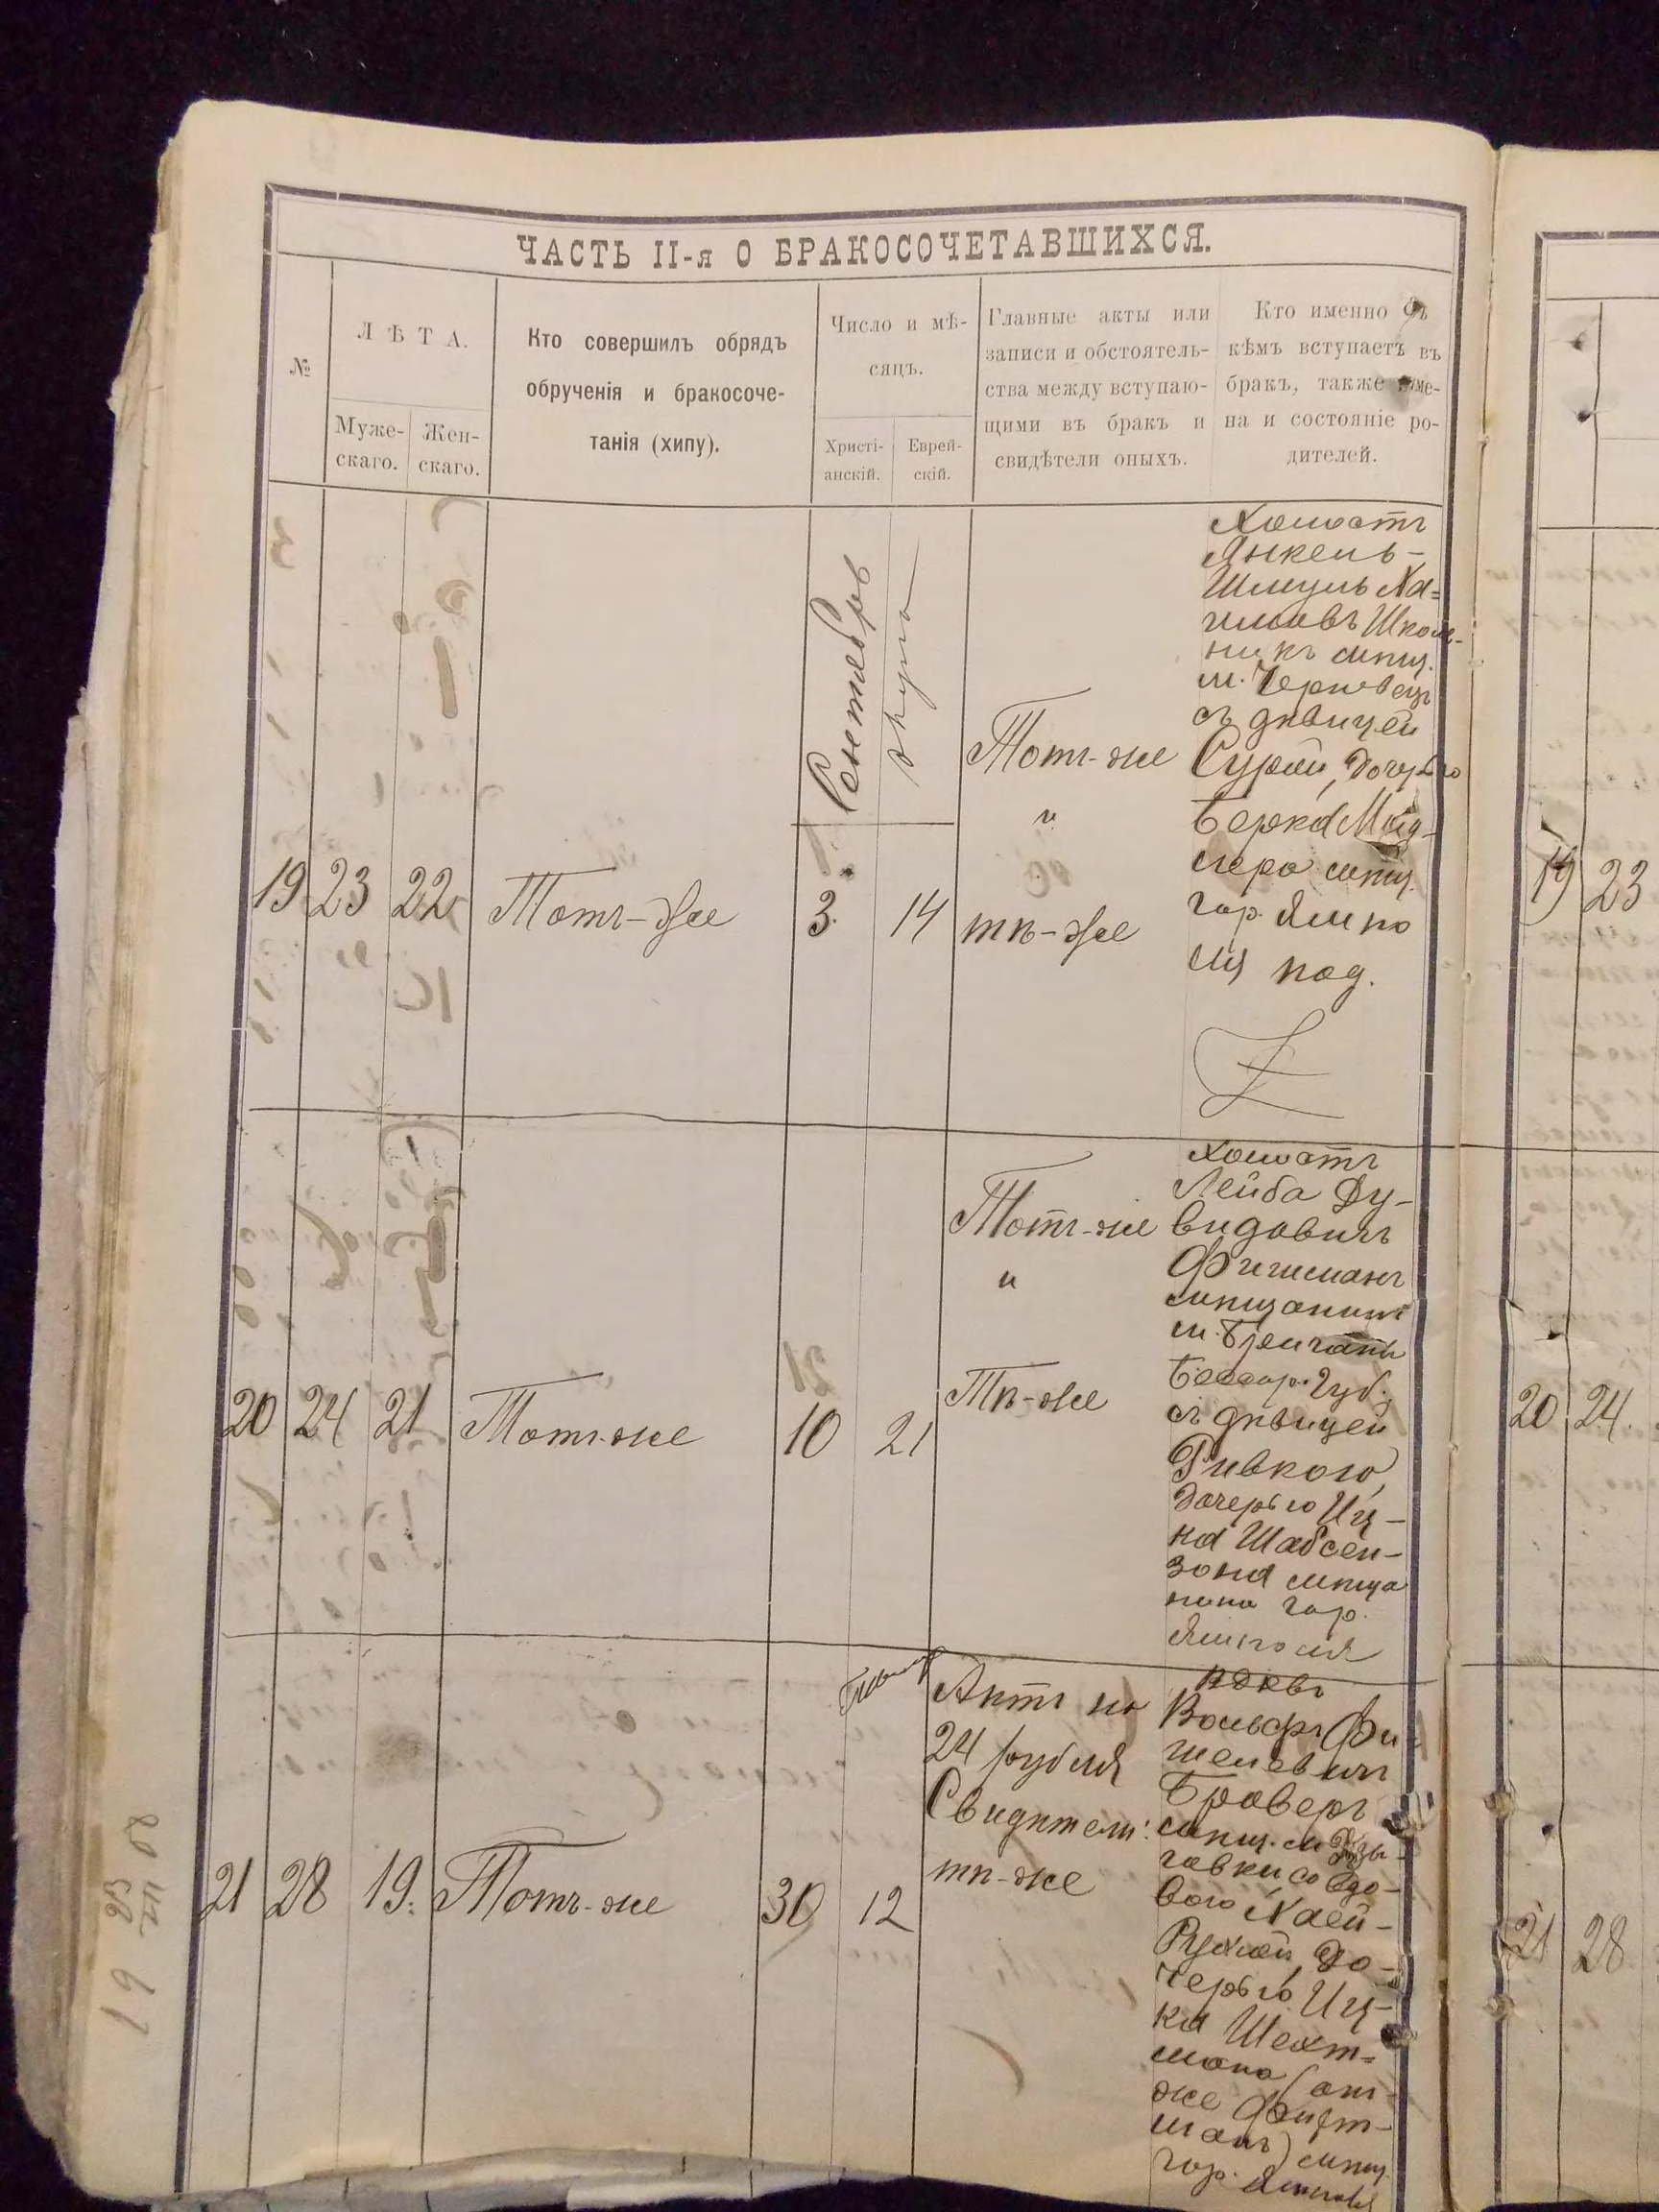 ЧАСТЬ II-я О БРАКОСОЧЕТАВШИХСЯ.
№
ЛѢТА.
Муже-
скаго.
Жен-
скаго.
Кто совершилъ обрядъ
обрученія и бракосоче-
танія (хипу).
Число и мѣ-
сяцъ.
Христі-
анскій.
Еврей-
скій.
Главные акты или
записи и обстоятель-
ства между вступаю-
щими въ бракъ и
свидѣтели оныхъ.
Кто именно съ
кѣмъ вступаетъ въ
бракъ, также име-
на и состояніе ро-
дителей.
Сентябрь
19 23 22 Тотъ-же 3. 14
Тотъ-же
и
тѣ-же
Холостъ
Янкель-
Шмуль Ха-
имовъ Школь-
никъ мѣщ.
м. Черновецъ
съ дѣвицей
Сурой, дочерью
Берка Мог-
лера мѣщ.
гор. Ямпо
ля под.
20 24 21 Тотъ-же 10 21
Тотъ-же
и
Тѣ-же
Холостъ
Лейба Ду-
видовичъ
Фишманъ
мѣщанинъ
м. Бричаны
Бессар. губ.
съ дѣвицей
Ривкою,
дочерью Иц-
ка Шабсен-
зона мѣща
нина гор.
Ямполя
21 28 19. Тотъ-же 30 12
Актъ на
24 рубля
Свидѣтели:
тѣ-же
вдовъ
Вольфъ Фи-
шелевичъ
Браверъ
мѣщ. м. Дзы-
говки со вдо-
вою Хаей-
Рухлей, до-
черью Иц-
ка Шехт-
мана (он
же
ман) мѣщ.
гор. Ямполя
19
20
21
23
24.
28